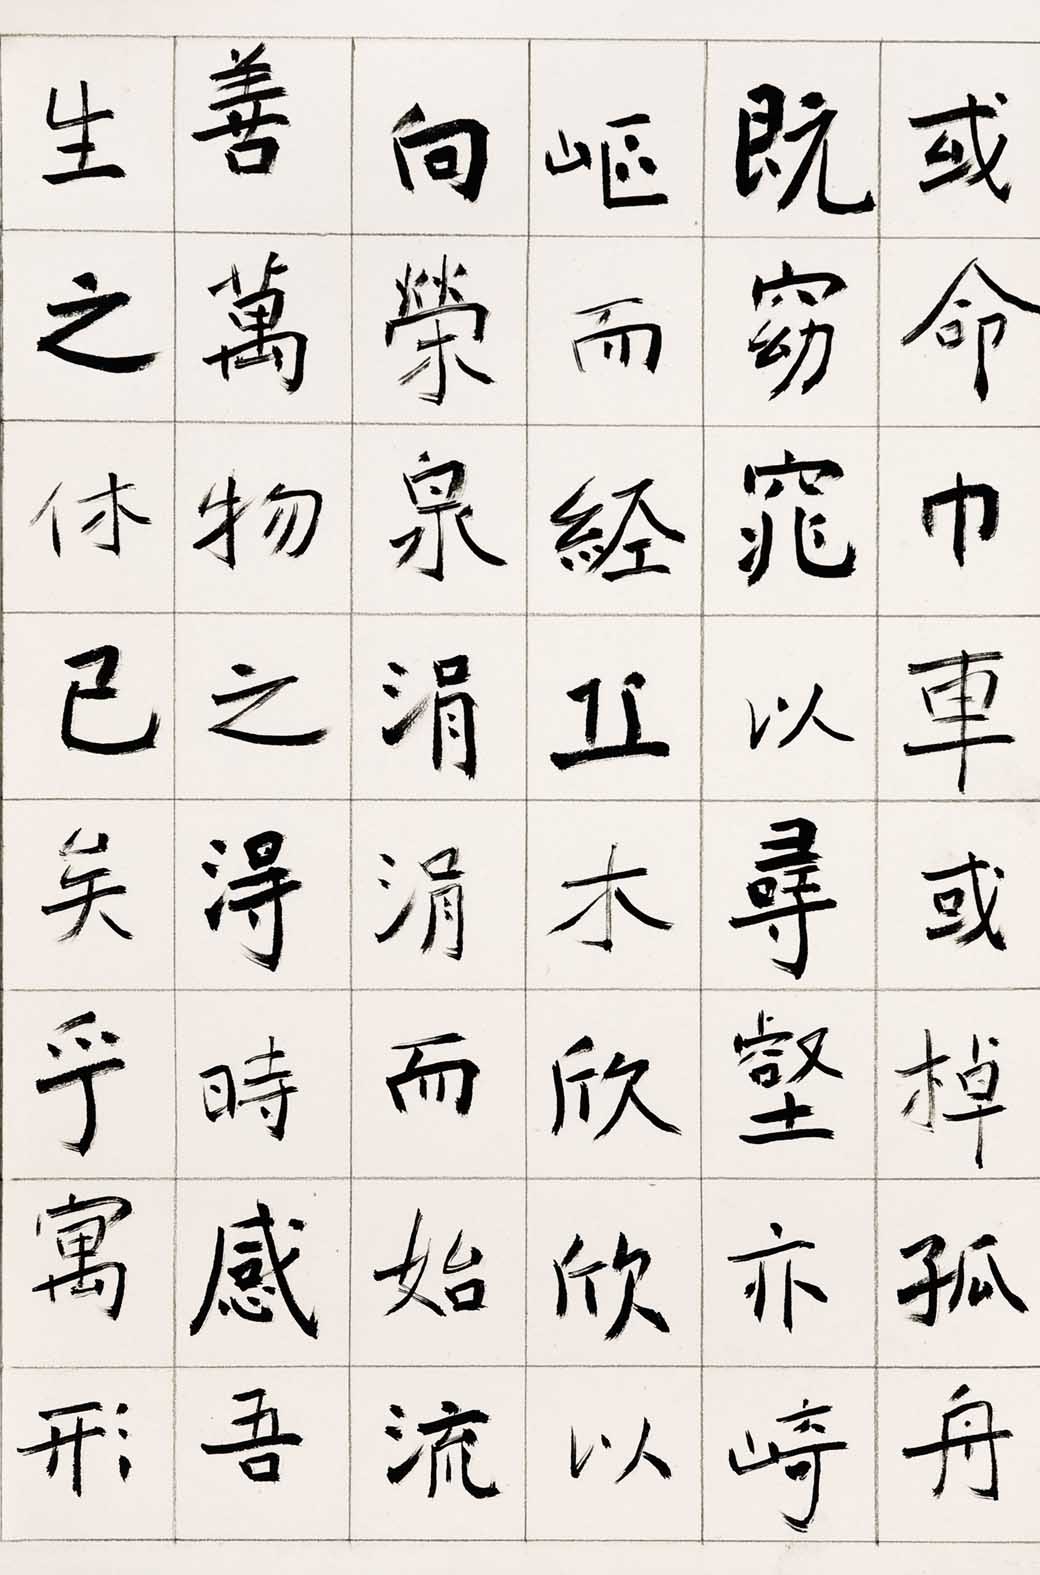 或命巾車或棹孤舟
既窈窕以尋壑亦崎
嶇而經丘木欣欣以
向榮泉涓涓而始流
善萬物之得時感吾
生之休已矣乎寓形